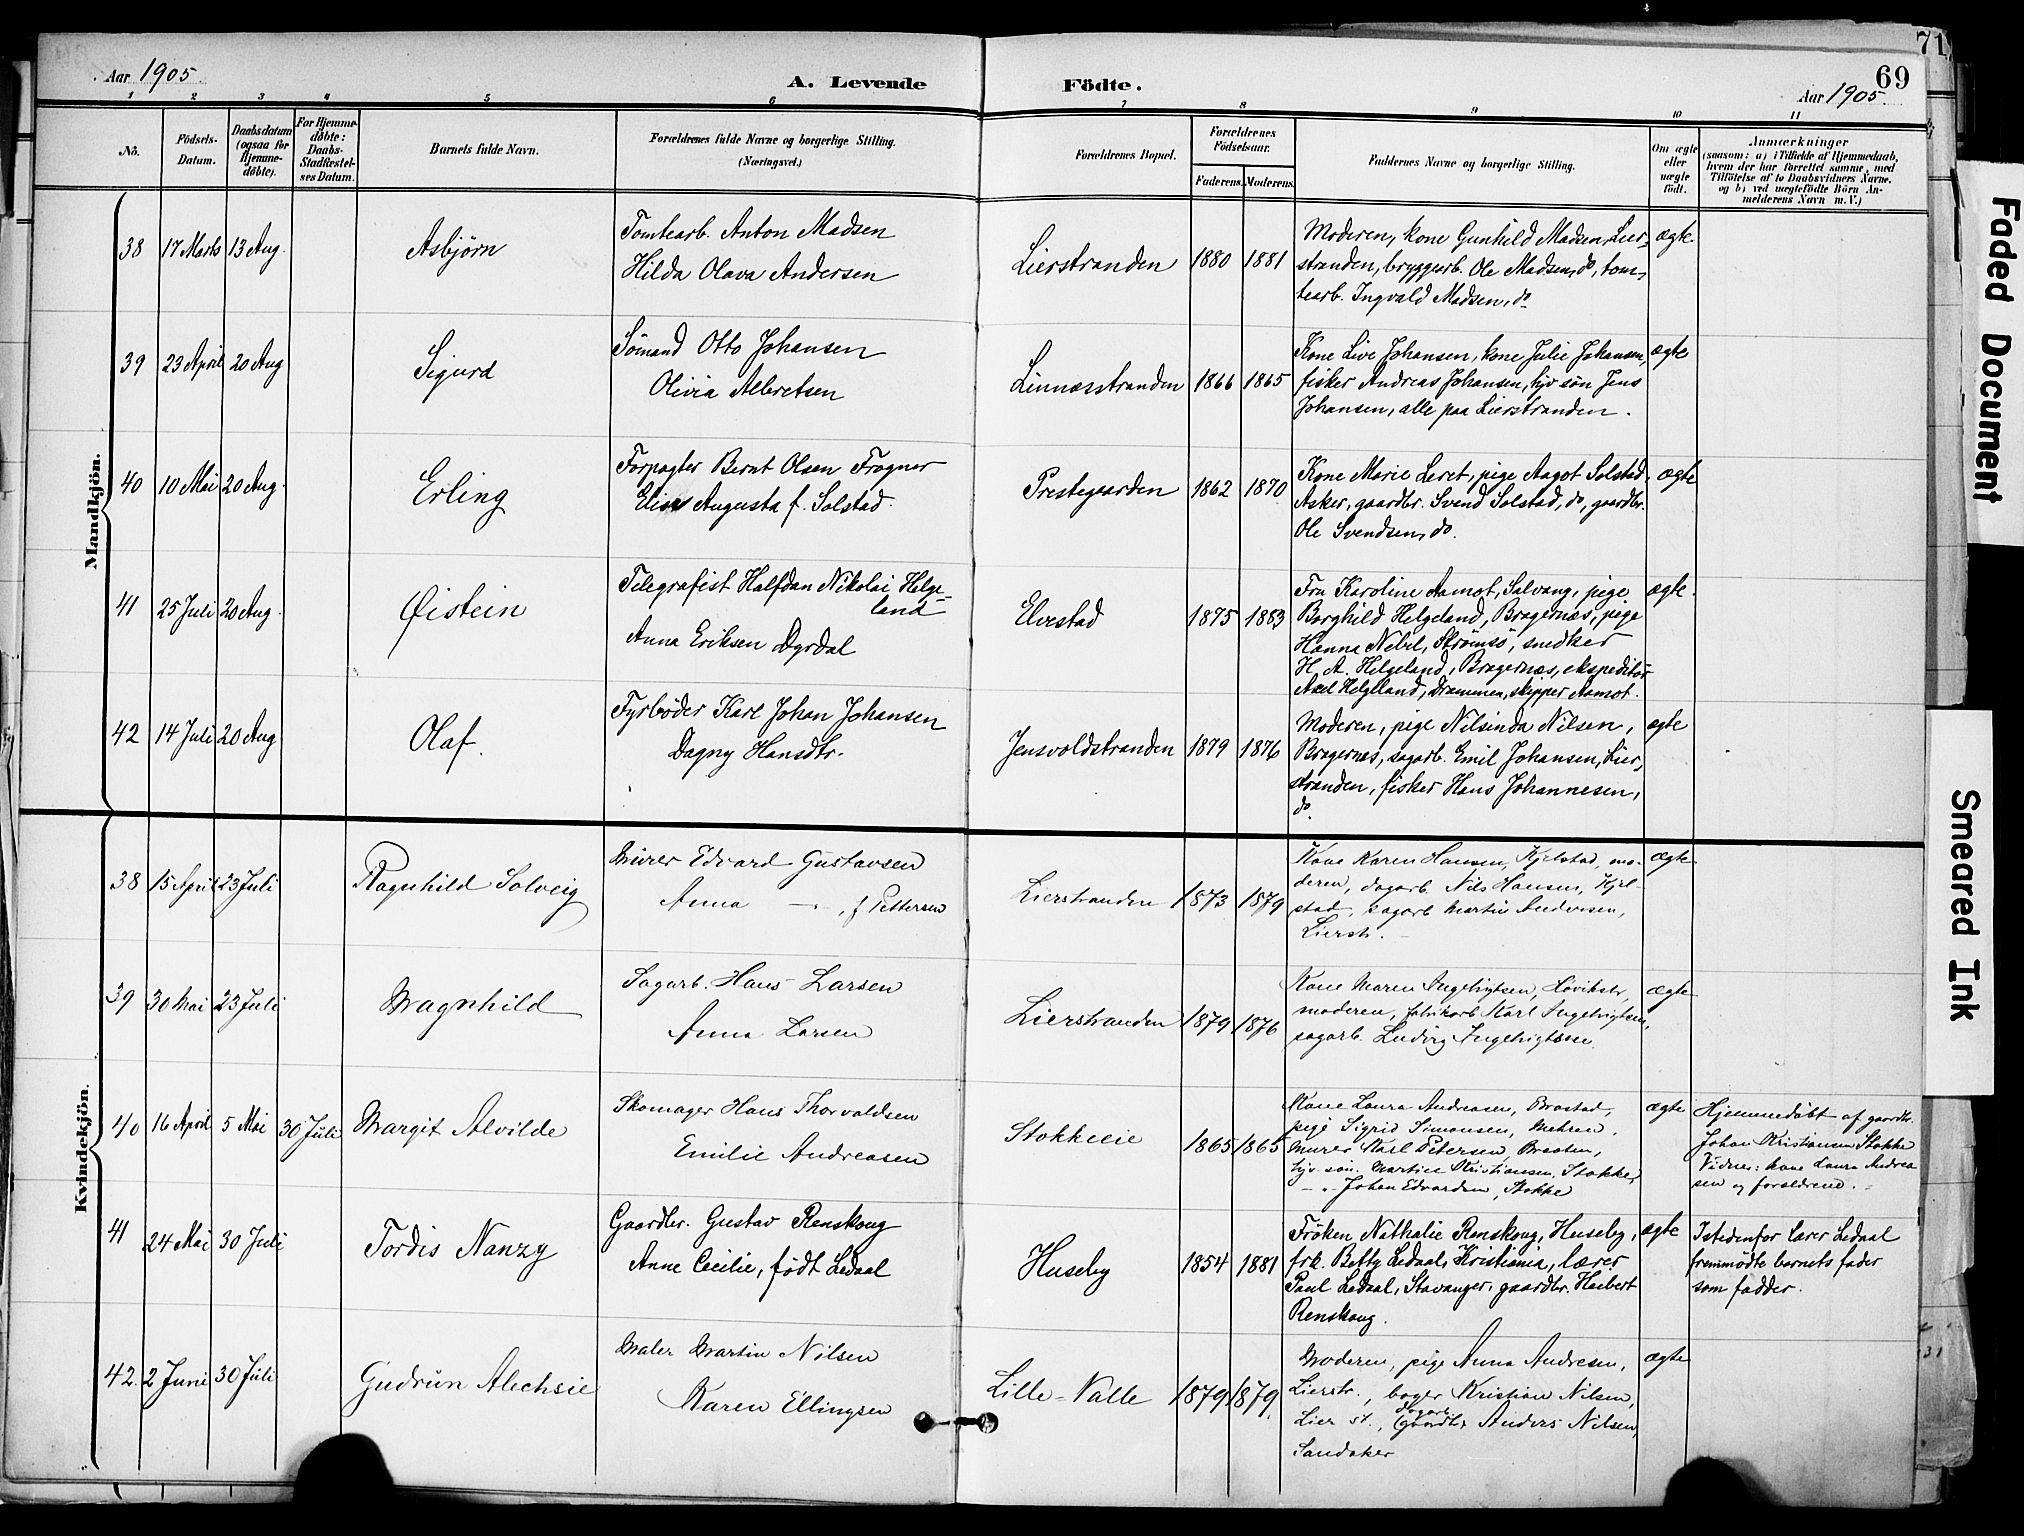 71
69
Aar 1905
A. Levende
Födte.
Aar 1905.
1 2 3 4 5 6 7 8 9 10 11
No.
Födsels-
Datum.
Daabsdatum
(ogsaa for
Hjemme-
döbte).
For Hjemme-
döbte:
Daabs-
Stadfæstel-
ses Datum.
Barnets fulde Navn.
Forældrenes fulde Navne og borgerlige Stilling.
(Næringsvei.)
Forældrenes Bopæl.
Forældrenes
Födselsaar.
Faderens. Moderens.
Faddernes Navne og borgerlige Stilling.
Om ægte
eller
uægte
födt.
Anmærkninger
(saasom: a) i Tilfælde af Hjemmedaab,
hvem der har forrettet samme, med
Tilföielse af to Daabsvidners Navne.
og b) ved uægtefödte Börn An-
melderens Navn m. V.)
Mandkjön.
38 17 Marts 13 Aug.
Asbjörn
Tomtearb. Anton Madsen
Hilda Olava Andersen
Lierstranden 1880 1881
Moderen, kone Gunhild Madsen, Lier-
stranden, bryggearb. Ole Madsen, do, tom-
tearb. Ingvald Madsen, do
ægte
39 23 April 20 Aug
Sigurd
Sömand Otto Johansen
Olivia Albretsen
Linnæsstranden 1866 1865
Kone Live Johansen, kone Julie Johansen,
fisker Andreas Johansen, hjv søn Jens
Johansen, alle paa Lierstranden.
ægte
40 10 Mai 20 Aug.
Erling
Forpagter Bernt Olsen Frogner
Elise Augusta f. Solstad.
Prestegaarden 1862 1870
Kone Marie Leret, pige Aagot Solstad,
Asker, gaardbr. Svend Solstad, do, gaardbr.
Ole Svendsen, do.
ægte
41 25 Juli 20 Aug.
Øistein
Telegrafist Halfdan Nikolai Helge-
land
Anna Eriksen Dyrdal
Elvestad 1875 1883
Fru Karoline Aamot, Solvang, pige
Borghild Helgeland, Bragernæs, pige
Hanna Nebel, Strömsö, snedker
H. A. Helgeland, Bragernæs, ekspeditör
Axel Helgeland, Drammen, skipper Aamot.
ægte.
42 14 Juli 20 Aug
Olaf.
Fyrböder Karl Johan Johansen
Dagny Hansdtr.
Jensvoldstranden 1879 1876
Moderen, pige Nilsinda Nilsen,
Bragernæs, sagarb. Emil Johansen, Lier-
stranden, fisker Hans Johannesen,
do.
ægte
Kvindekjön.
38 15 April 23 Juli
Ragnhild Solveig
Murer Edvard Gustavsen
Anna — " —, f Pettersen
Lierstranden 1873 1879
Kone Karen Hansen, Kjelstad, mo-
deren, dagarb. Nils Hansen, Kjel-
stad, sagarb Martin Andersen,
Lierstr.
ægte
39 30 Mai 23 Juli
Magnhild
Sagarb. Hans Larsen
Anna Larsen
Lierstranden 1879 1876
Kone Maren Ingebrigtsen, Løvikstr,
moderen, fabrikarb Karl Ingebrigtsen,
sagarb. Ludvig Ingebrigtsen.
ægte
40 16 April 5 Mai 30 Juli
Margit Alvilde
Skomager Hans Thorvaldsen
Emilie Andreasen
Stokkeeie 1865 1865
Kone Laura Andreasen, Brastad,
pige Sigrid Simonsen, Mehren,
murer Karl Petersen, Braaten,
hjv. søn. Martin Kristiansen, Stokke,
— " — Johan Edvardsen, Stokke
ægte
Hjemmedøbt af gaardbr.
Johan Kristiansen Stokke
Vidner: kone Laura Andrea
sen og forældrene.
41 24 Mai 30 Juli
Tordis Nanzy
Gaardbr. Gustav Renskoug
Anne Cecilie, født Ledaal
Huseby 1854 1881
Fröken Nathalie Renskoug, Huseby,
frk. Betty Ledaal, Kristiania, lærer
Paul Ledaal, Stavanger, gaardbr. Herbert
Renskoug.
ægte
Istedenfor lærer Ledaal
fremmödte barnets fader
som fadder.
42. 2 Juni 30 Juli
Gudrun Alechsie
Maler Martin Nilsen
Karen Ellingsen
Lille-Valle 1879 1879.
Moderen, pige Anna Andresen,
Lierstr., bager Kristian Nilsen,
Lier st., gaardbr Anders Nilsen,
Sandaker
ægte
Faded Document
Smeared Ink